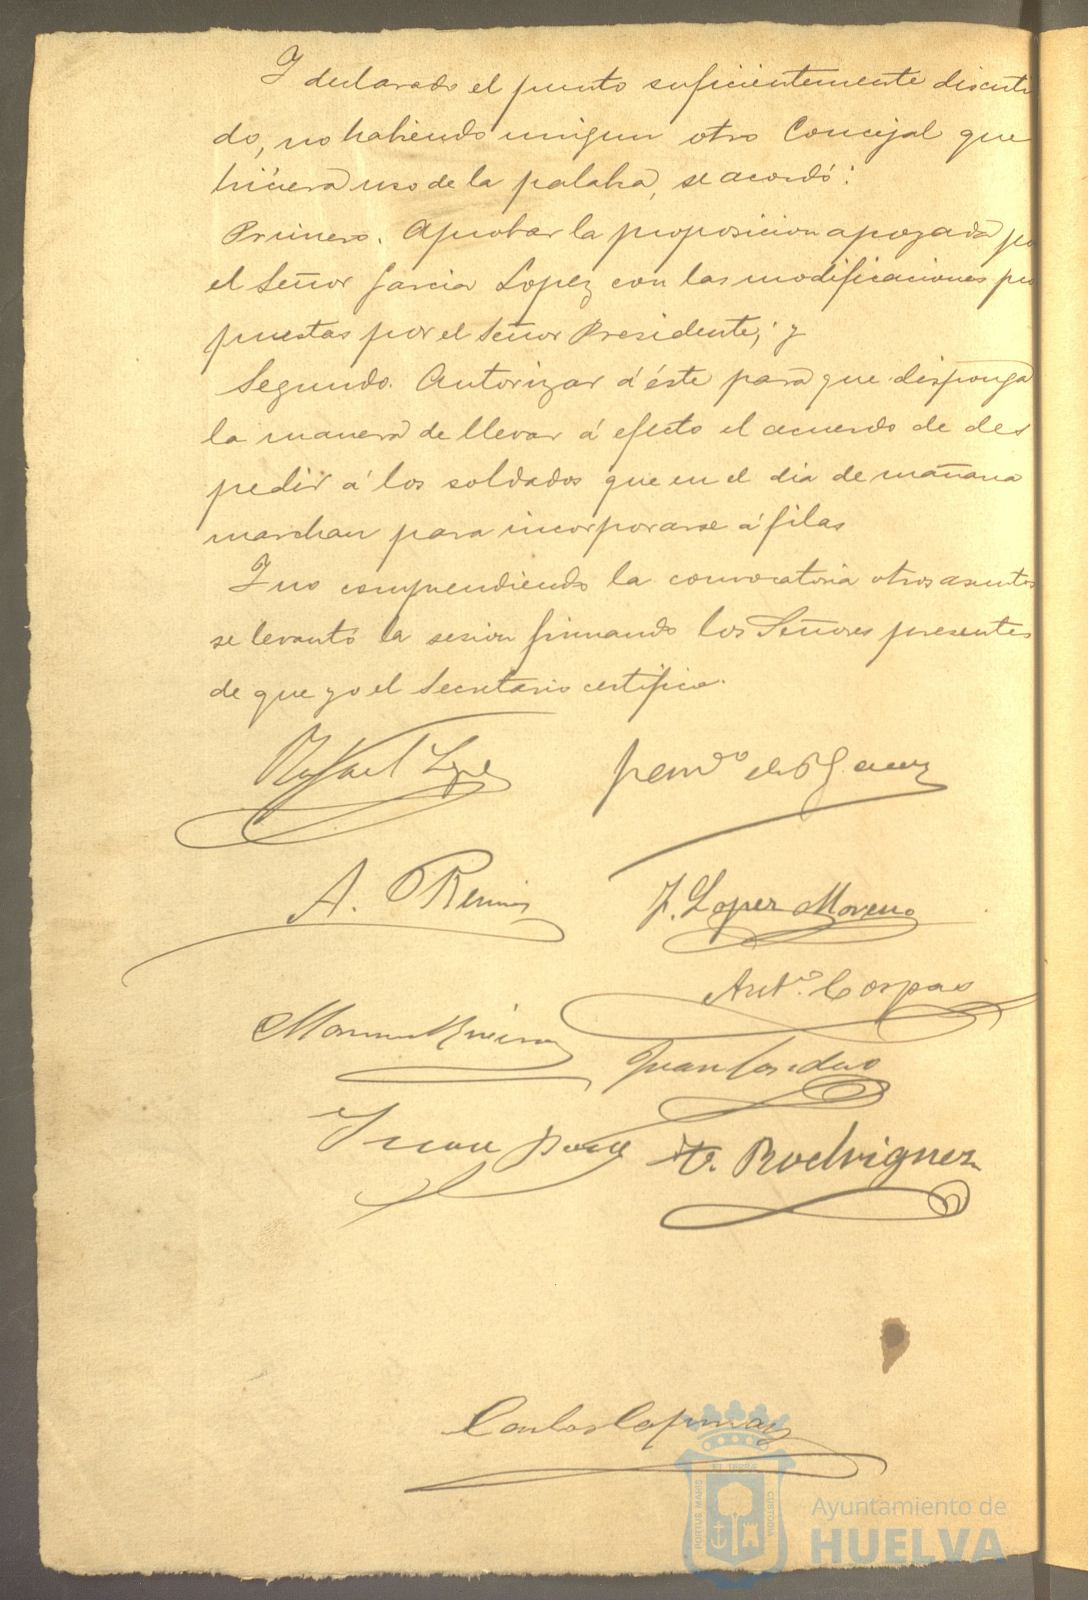 Y declarado el punto suficientemente discuti
do, no habiendo ningun otro Concejal que
hiciera uso de la palabra, se acordó:
Primero. Aprobar la proposicion apoyada po
el Señor Garcia Lopez con las modificaciones pro
puestas por el Señor Presidente; y
Segundo. Autorizar á éste para que disponga
la manera de llevar á efecto el acuerdo de des
pedir á los soldados que en el dia de mañana
marchan para incorporarse á filas
Y no comprendiendo la convocatoria otros asuntos
se levantó la sesion firmando los Señores presentes
de que yo el Secretario certifico.
Rafael Lopez
A.
J. Lopez Moreno
Antº. Corpas
Juan
Rodriguez
Carlos
PORTUS MARIS ET TERRAE CUSTODIA
Ayuntamiento de
HUELVA